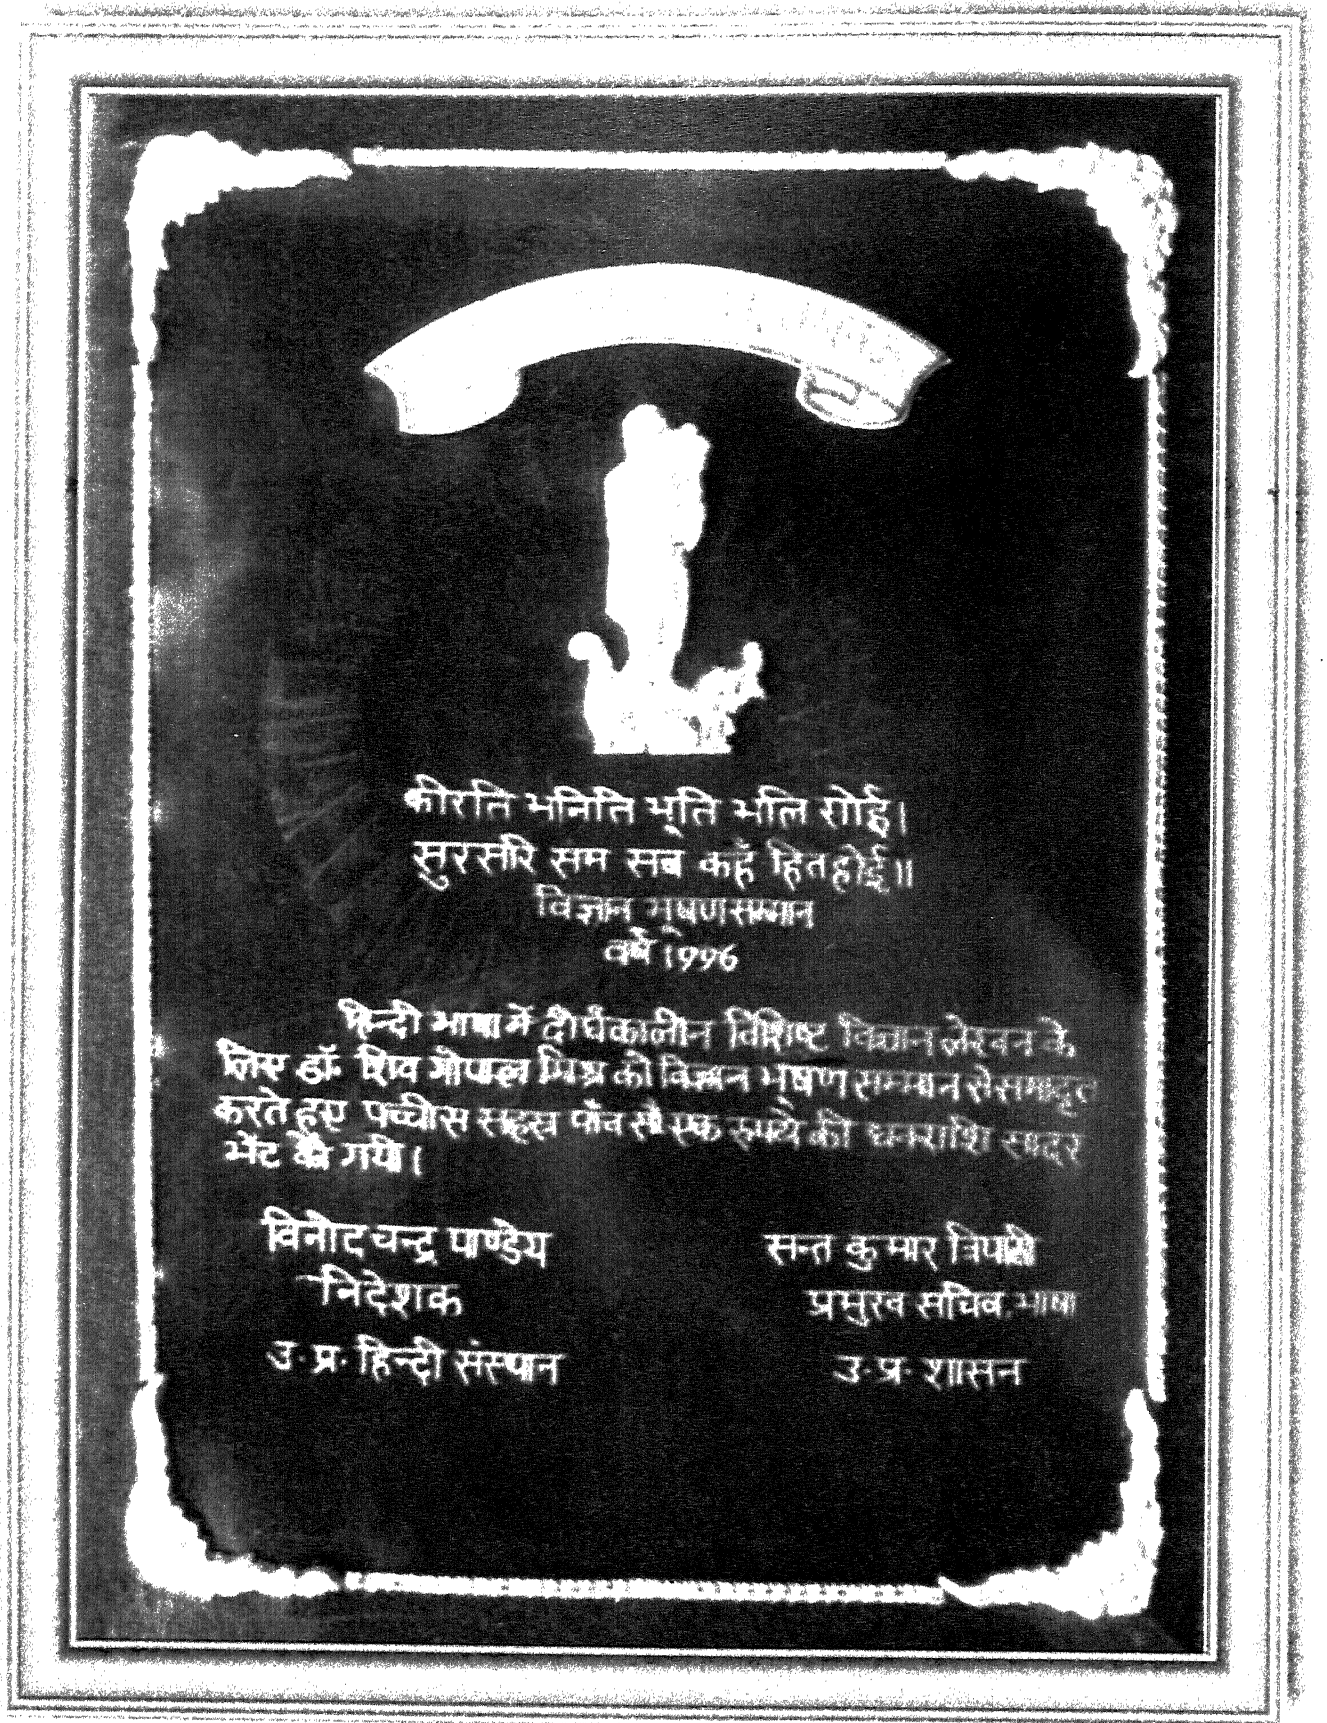 कीरति भनिति भूति भलि सोई।
सुरसरि सम सब कहँ हित होई॥
विज्ञान भूषण सम्मान
वर्ष 1996
हिन्दी भाषा में दीर्घकालीन विशिष्ट विज्ञान लेखन के
लिए डॉ. शिव गोपाल मिश्र को विज्ञान भूषण सम्मान से समादृत
करते हुए पच्चीस सहस्र पाँच सौ एक रुपये की धनराशि सादर
भेंट की गयी।
विनोद चन्द्र पाण्डेय
निदेशक
उ. प्र. हिन्दी संस्थान
सन्त कुमार त्रिपाठी
प्रमुख सचिव, भाषा
उ. प्र. शासन